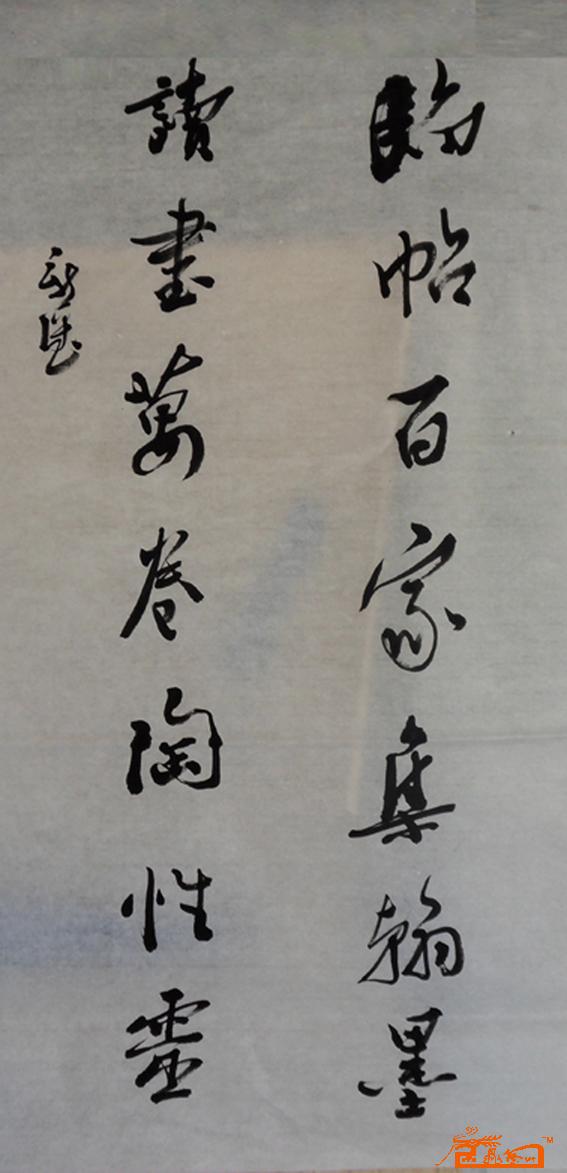 臨帖百家集翰墨
讀書萬卷陶性靈